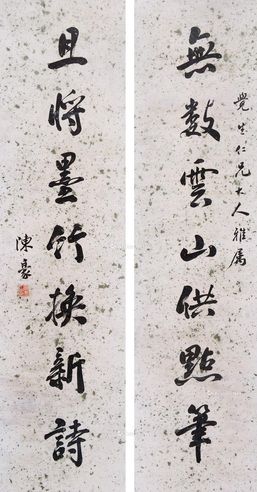 覺生仁兄大人雅屬
無數雲山供點筆
且將墨竹換新詩
陳豪